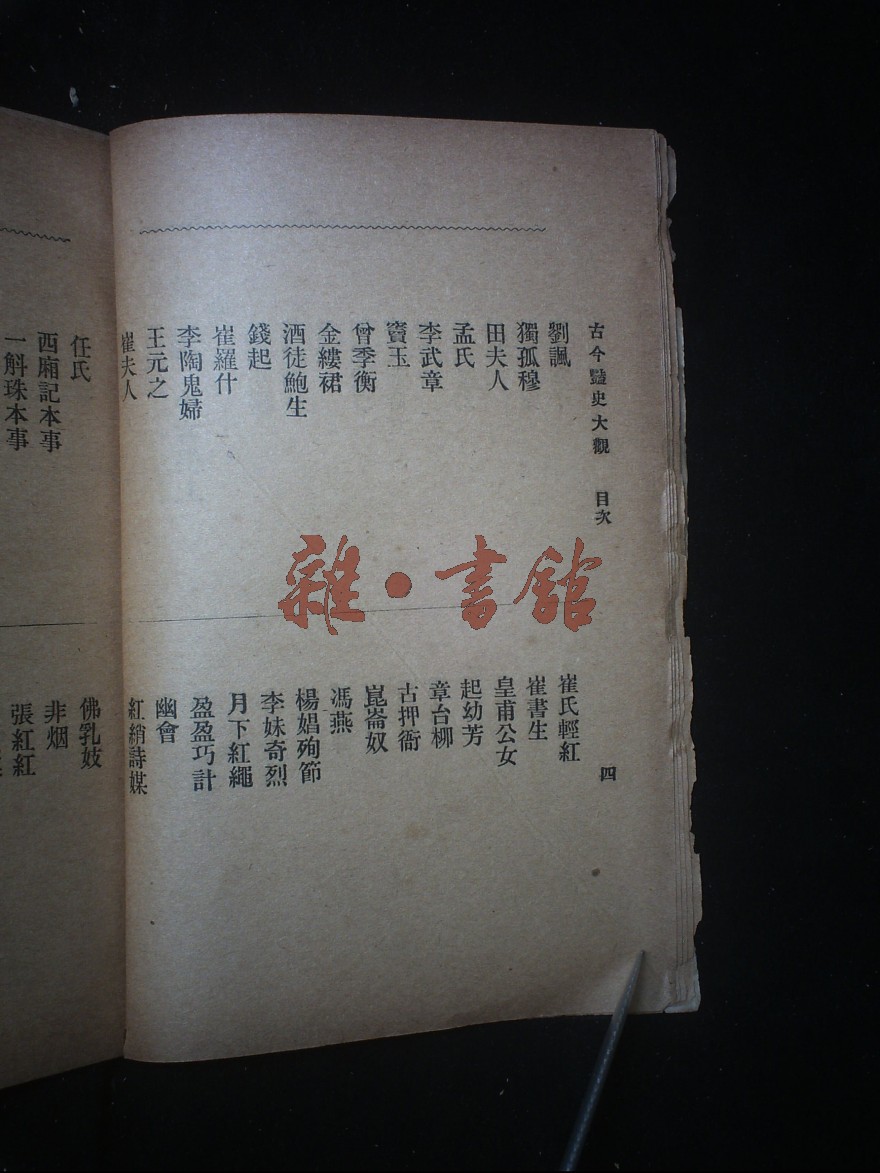 古今豔史大觀 目次
四
劉諷
獨孤穆
田夫人
孟氏
李武章
竇玉
曾季衡
金縷裙
酒徒鮑生
錢起
崔羅什
李陶鬼婦
王元之
崔夫人
崔氏輕紅
崔書生
皇甫公女
起幼芳
章台柳
古押衙
崑崙奴
馮燕
楊娼殉節
李妹奇烈
月下紅繩
盈盈巧計
幽會
紅綃詩媒
任氏
西廂記本事
一斛珠本事
佛乳妓
非烟
張紅紅
雜·書館